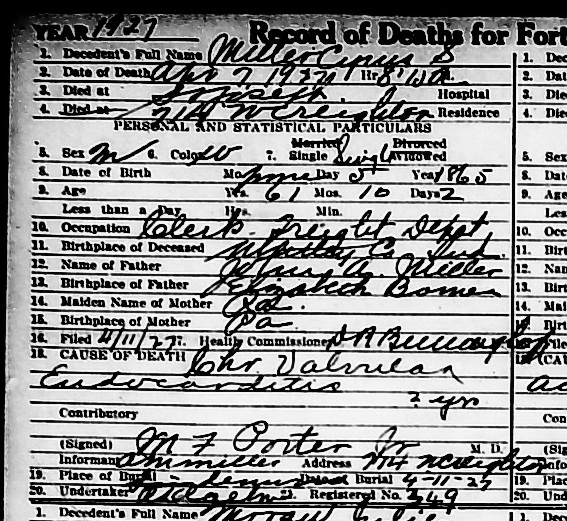 YEAR 1927 Record of Deaths for Fort
1. Decedent's Full Name Miller Cyrus S
2. Date of Death Apr 7 1927 Hr. 8
3. Died at St Joseph Hospital
4. Died at 714 W Creighton Residence
PERSONAL AND STATISTICAL PARTICULARS
Married Divorced
5. Sex M 6. Color W 7. Single Single Widowed
8. Date of Birth Mo. June Day 5 Year 1865
9. Age Yrs. 61 Mos. 10 Days 2
Less than a Day Hrs. Min.
10. Occupation Clerk Freight Depot
11. Birthplace of Deceased Whitley Co. Ind.
12. Name of Father Miller
13. Birthplace of Father Elizabeth
14. Maiden Name of Mother Pa.
15. Birthplace of Mother Pa
16. Filed 4/11/27 17. Health Commissioner
18. CAUSE OF DEATH Chr Valvular
Endocarditis
2 yrs
Contributory
(Signed) M F Porter Jr M. D.
Informant Miller Address 714 W Creighton
19. Place of Burial Lindenwood Date of Burial 4-11-27
20. Undertaker 21. Registered No. 349
1. Decedent's Full Name
1. Dec
2. Dat
3. Die
4. Die
5. Sex
8. Dat
9. Age
Les
10. Occ
11. Birt
12. Nam
13. Birt
14. Mai
Con
(Sig
19. Plac
20. Und
1. Dec